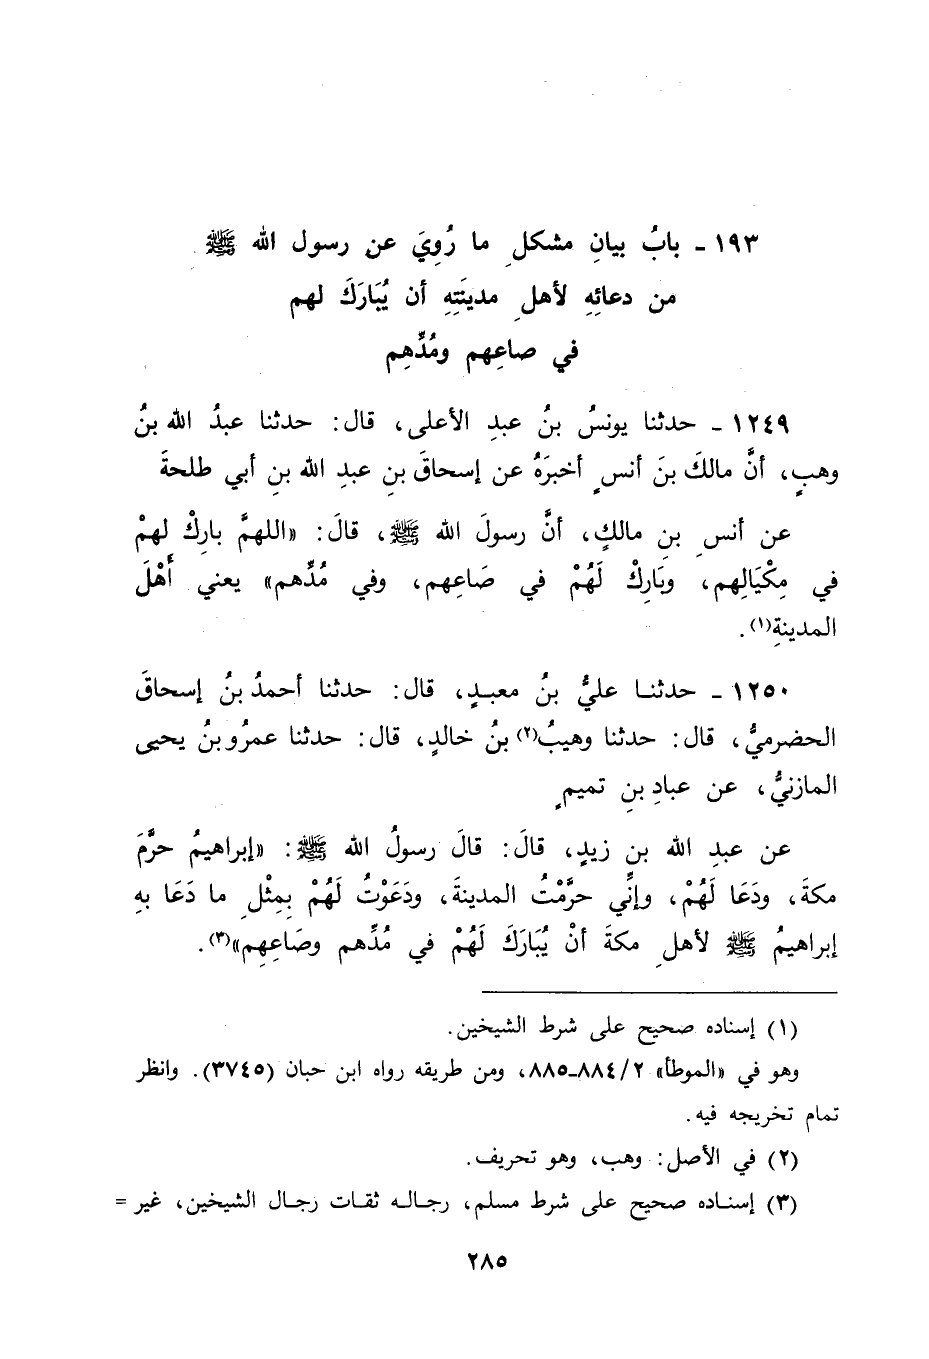 ١٩٣ ـ بابُ بيانِ مشكلِ ما رُوِيَ عن رسول الله ﷺ
من دعائِهِ لأهلِ مدينَتِهِ أن يُبَارَكَ لهم
في صاعِهم ومُدِّهِم
١٢٤٩ ـ حدثنا يونسُ بنُ عبدِ الأعلى، قال: حدثنا عبدُ الله بنُ
وهبٍ، أنَّ مالكَ بنَ أنسٍ أخبرَهُ عن إسحاقَ بنِ عبدِ الله بنِ أبي طلحةَ
عن أنسِ بنِ مالكٍ، أنَّ رسولَ الله ﷺ، قالَ: «اللهمَّ بارِكْ لهمْ
في مِكْيَالِهم، وبَارِكْ لَهُمْ في صَاعِهم، وفي مُدِّهم» يعني أَهْلَ
المدينةِ(١).
١٢٥٠ ـ حدثنـا عليُّ بنُ معبـدٍ، قال: حدثنا أحمدُ بنُ إسحاقَ
الحضرميُّ، قال: حدثنا وهيبُ(٢) بنُ خالدٍ، قال: حدثنا عمرُو بنُ يحيى
المازنيُّ، عن عبادِ بنِ تميمٍ
عن عبدِ الله بن زيدٍ، قالَ: قالَ رسولُ الله ﷺ: «إبراهيمُ حرَّمَ
مكةَ، ودَعَا لَهُمْ، وإنِّي حرَّمْتُ المدينةَ، ودَعَوْتُ لَهُمْ بِمِثْلِ ما دَعَا بهِ
إبراهيمُ ﷺ لأهلِ مكةَ أنْ يُبَارَكَ لَهُمْ في مُدِّهم وصَاعِهِم»(٣).
(١) إسناده صحيح على شرط الشيخين.
وهو في «الموطأ» ٢/ ٨٨٤ـ٨٨٥، ومن طريقه رواه ابن حبان (٣٧٤٥). وانظر
تمام تخريجه فيه.
(٢) في الأصل: وهب، وهو تحريف.
(٣) إسنـاده صحيح على شرط مسلم، رجـالـه ثقـات رجـال الشيخين، غير =
٢٨٥